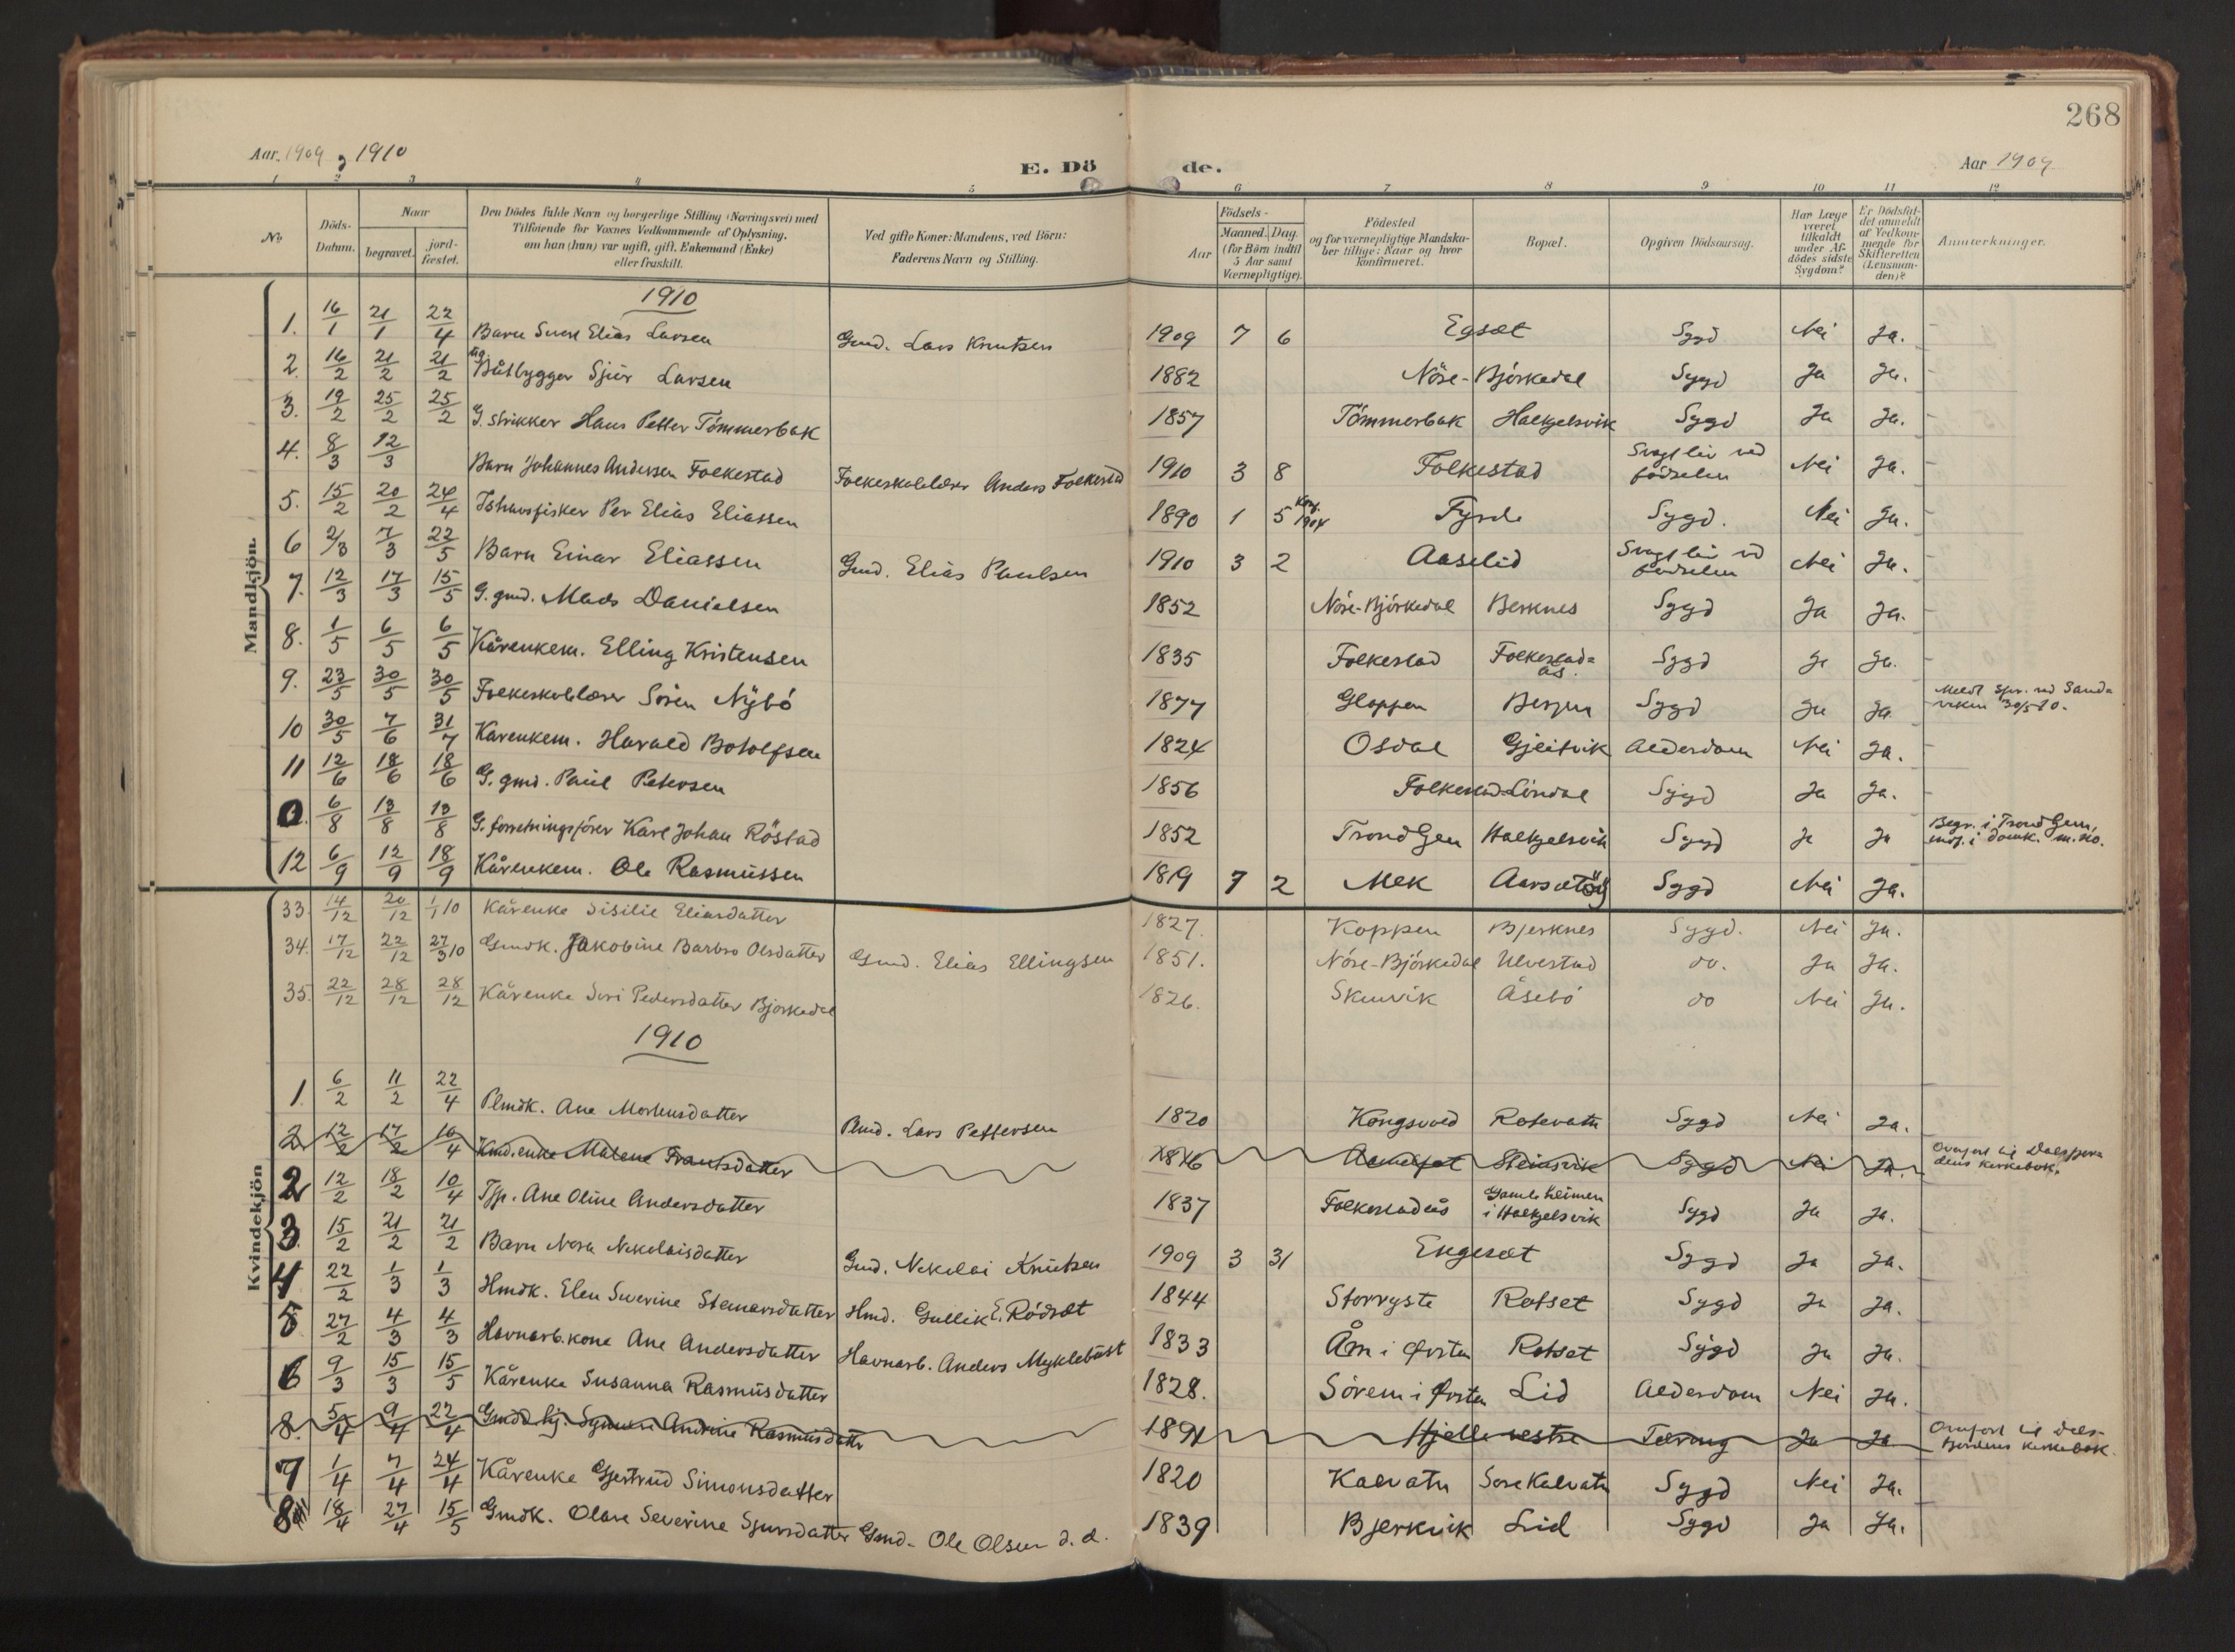 268
Aar 1909 og 1910
E. Döde.
Aar 1909
1 2 3 4 5 6 7 8 9 10 11 12
No
Döds-Datum.
Naar
begravet.
jord-fæstet.
Den Dödes fulde Navn og borgerlige Stilling (Næringsvei) med
Tilföiende for Voxnes Vedkommende af Oplysning,
om han (hun) var ugift, gift, Enkemand (Enke)
eller fraskilt.
Ved gifte Koner: Mandens, ved Börn:
Faderens Navn og Stilling.
Födsels-
Aar
Maaned. Dag.
(for Börn indtil
5 Aar samt
Værnepligtige).
Födested
og for værnepligtige Mandska-
ber tillige: Naar og hvor
konfirmeret.
Bopæl.
Opgiven Dödsaarsag.
Har Læge
været
tilkaldt
under Af-
dödes sidste
Sygdom?
Er Dödsfal-
det anmeldt
af Vedkom-
mende for
Skifteretten
(Lensman-
den)?
Anmerkninger.
Mandkjön.
1910
1. 16/1 21/1 22/4 Barn Sven Elias Larsen Gmd. Lars Knutsen 1909 7 6 Egsæt Sygd Nei Ja.
2. 16/2 21/2 21/2 ug. Båtbygger Sjur Larsen 1882 Nöre-Björkedal Sygd Ja Ja.
3. 19/2 25/2 25/2 G. strikker Hans Petter Tömmerbak 1857 Tömmerbak Halkjelsvik Sygd Ja Ja.
4. 8/3 12/3 Barn Johannes Andersen Folkestad Folkeskolelærer Anders Folkestad 1910 3 8 Folkestad Svagt liv ved födselen Nei Ja.
5. 15/2 20/2 24/4 Ishavsfisker Per Elias Eliassen 1890 1 5 Konf. 1904 Fyrde Sygd. Nei Ja.
6 2/3 7/3 22/5 Barn Einar Eliassen Gmd. Elias Paulsen 1910 3 2 Aaselid Svagt liv v födselen Nei Ja.
7. 12/3 17/3 15/5 G. gmd. Mads Danielsen 1852 Nöre-Björkedal Berknes Sygd Ja Ja.
8. 1/5 6/5 6/5 Kårenkem. Elling Kristensen 1835 Folkestad Folkestad-ås. Sygd Ja Ja.
9. 23/5 30/5 30/5 Folkeskolelærer Sören Nybö 1877 Gloppen Bergen Sygd Ja Ja Meldt Spr. ved Sandviken 30/5 10.
10 30/5 7/6 31/7 Kårenkem. Harald Botolfsen 1824 Osdal Gjeitvik Alderdom Nei Ja.
11 12/6 18/6 18/6 G. gmd. Paul Petersen 1856 Folkestad-Lindal Sygd Ja Ja.
0. 6/8 13/8 13/8 G. forretningsförer Karl Johan Röstad 1852 Trondhjem Halkjelsvik Sygd Ja Ja Begr. i Trondhjem, indf. i domk. m. No.
12 6/9 12/9 18/9 Kårenkem. Ole Rasmussen 1819 7 2 Mek Aarsætöy Sygd Nei Ja.
Kvindekjön
33. 14/12 20/12 1/1 10 Kårenke Sisilie Eliasdatter 1827. Koppen Bjerknes Sygd. Nei Ja.
34. 17/12 22/12 27/3 10 Gmdk. Jakobine Barbro Olsdatter Gmd. Elias Ellingsen 1851. Nöre-Björkedal Ulvestad do. Ja Ja.
35. 22/12 28/12 28/12 Kårenke Seri Pedersdatter Björkedal 1826. Skinvik Åsebö do Nei Ja.
1910
1. 6/2 11/2 22/4 Plmdk. Ane Mortensdatter Plmd. Lars Pettersen 1820 Kongsvold Rotevatn Sygd Nei Ja.
2 12/2 17/2 10/4 Kmd.enke Malene Frantsdatter 1816 Steinsvik Sygd Nei Ja. Overført til Dalsfjordens kirkebok.
2 12/2 18/2 10/4 Tjp. Ane Oline Andersdatter 1837 Folkestadås Gamleheimen i Halkjelsvik Sygd Ja Ja.
3. 15/2 21/2 21/2 Barn Nora Nekolaisdatter Gmd. Nekolai Knutsen 1909 3 31 Engeset Sygd Ja Ja.
4 22/2 1/3 1/3 Hmdk. Elen Severine Steinarsdatter Hmd. Gullik E. Rödset 1844 Storryste Rotset Sygd Ja Ja.
5 27/2 4/3 4/3 Havnarb.kone Ane Andersdatter Havnarb. Anders Myklebust 1833 Åm i Ørsten Rotset Sygd Ja Ja.
6 9/3 15/3 15/5 Kårenke Susanna Rasmusdatter 1828. Sörem i Ørsten Lid Alderdom Nei Ja.
8. 5/4 9/4 22/4 Gmdd. hj. Synnøve Andrine Rasmusdatter 1891 Hjelle vestre Tæring Ja Ja Overført til Dalsfjordens kirkebok.
7 1/4 7/4 24/4 Kårenke Gjertrud Simonsdatter 1820 Kalvatn Sore Kalvatn Sygd Nei Ja.
8 18/4 27/4 15/5 Gmdk. Olave Severine Sjursdatter Gmd. Ole Olsen d. e. 1839 Bjerkvik Lid Sygd Ja Ja.